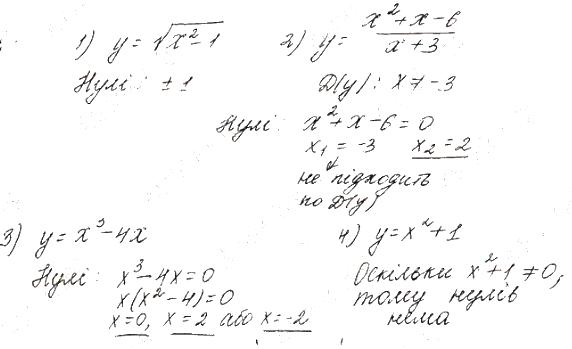 1) y = √(x² - 1)
Нулі: ± 1
2) y = (x² + x - 6)/(x + 3)
D(y): x ≠ -3
Нулі: x² + x - 6 = 0
x₁ = -3 x₂ = 2
не підходить
по D(y)
3) y = x³ - 4x
Нулі: x³ - 4x = 0
x(x² - 4) = 0
x = 0, x = 2 або x = -2
4) y = x² + 1
Оскільки x² + 1 ≠ 0,
тому нулів
нема